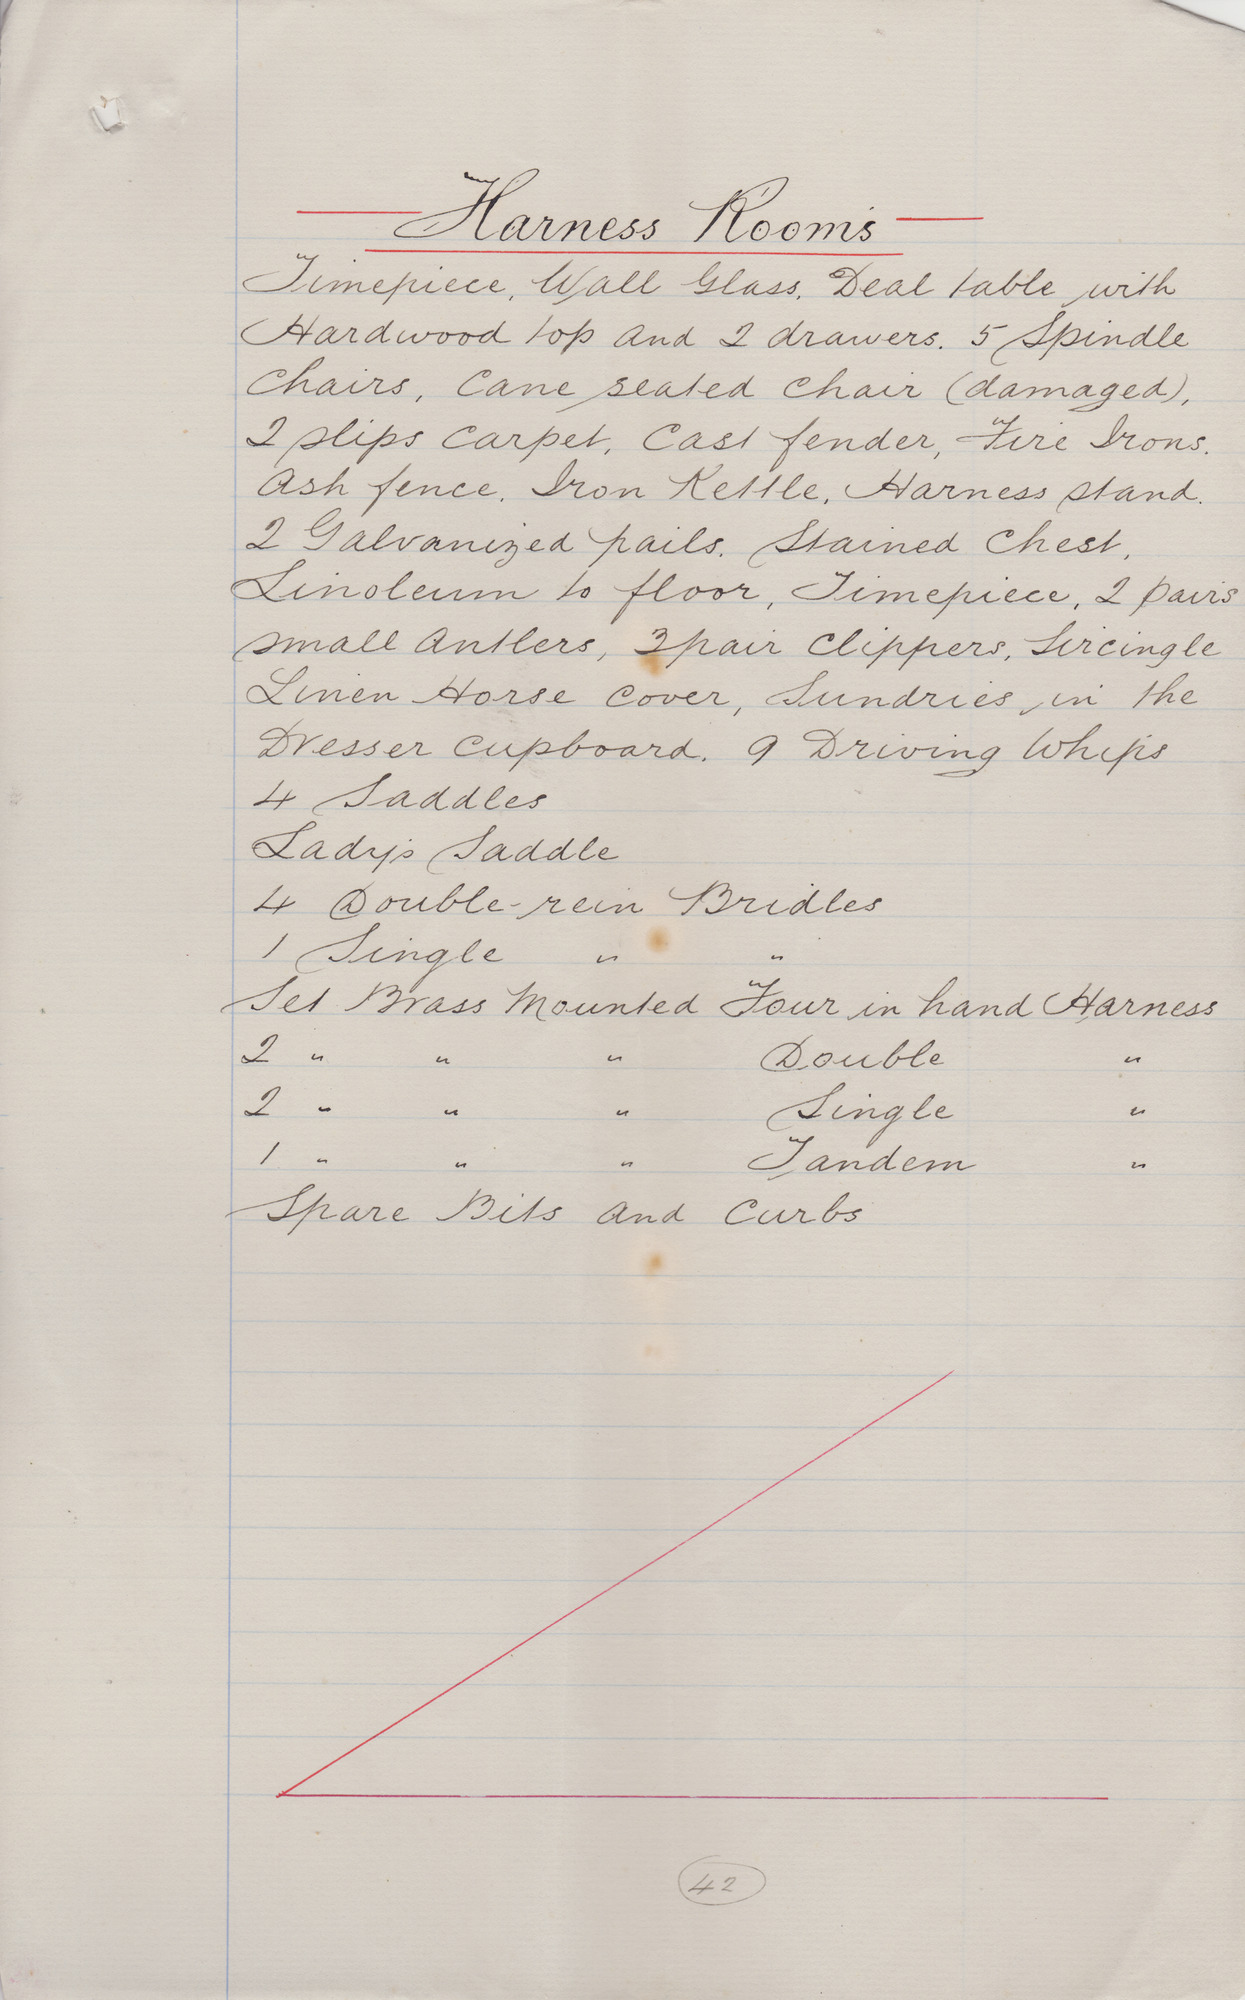 Harness Rooms
Timepiece, Wall Glass, Deal table with
Hardwood top and 2 drawers. 5 Spindle
Chairs, Cane seated chair (damaged),
2 slips carpet, Cast fender, Fire Irons.
Ash fence, Iron Kettle, Harness stand.
2 Galvanized pails. Stained Chest,
Linoleum to floor, Timepiece, 2 pairs
small Antlers, 3 pair Clippers, Sircingle
Linen Horse Cover, Sundries in the
Dresser Cupboard. 9 Driving Whips
4 Saddles
Lady's Saddle
4 Double-rein Bridles
1 Single " "
Set Brass Mounted Four in hand Harness
2 " " " Double "
2 " " " Single "
1 " " " Tandem "
Spare Bits and Curbs
42